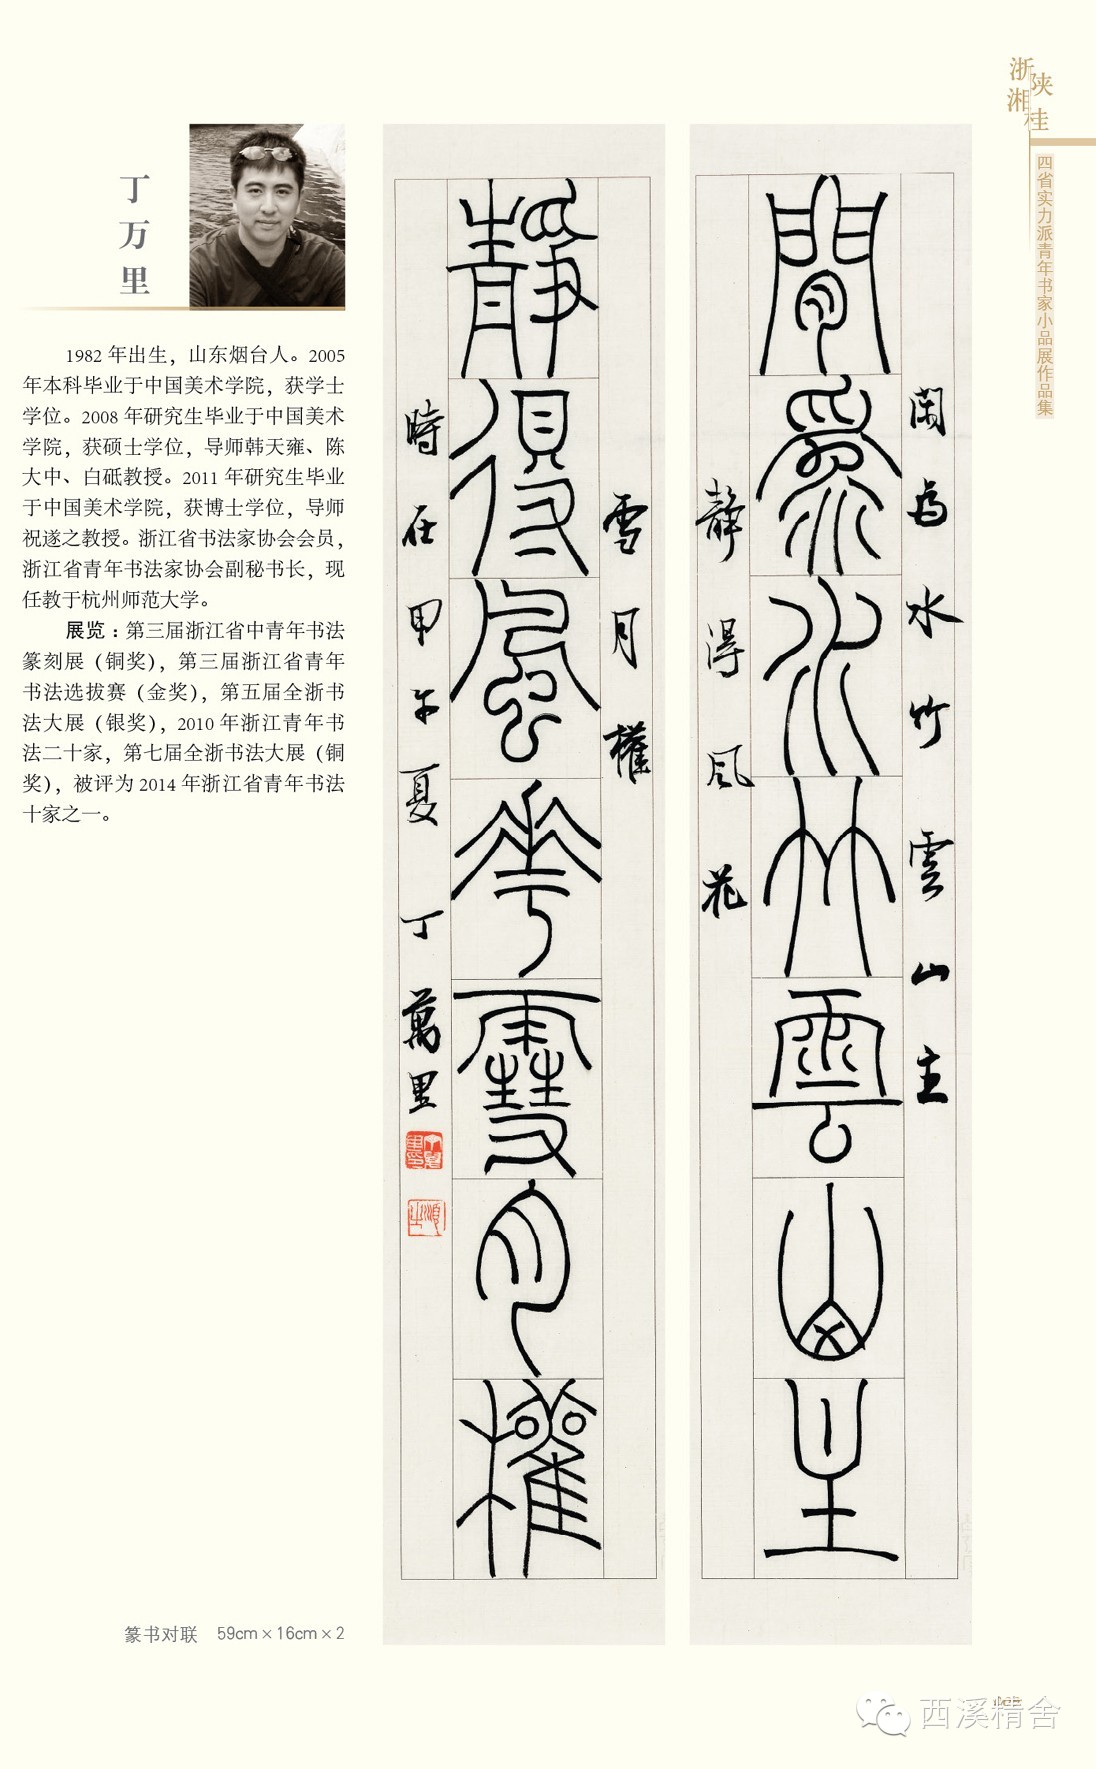 浙湘
陕桂
四省实力派青年书家小品展作品集
丁万里
1982 年出生，山东烟台人。2005
年本科毕业于中国美术学院，获学士
学位。2008 年研究生毕业于中国美术
学院，获硕士学位，导师韩天雍、陈
大中、白砥教授。2011 年研究生毕业
于中国美术学院，获博士学位，导师
祝遂之教授。浙江省书法家协会会员，
浙江省青年书法家协会副秘书长，现
任教于杭州师范大学。
展览：第三届浙江省中青年书法
篆刻展（铜奖），第三届浙江省青年
书法选拔赛（金奖），第五届全浙书
法大展（银奖），2010 年浙江青年书
法二十家，第七届全浙书法大展（铜
奖），被评为 2014 年浙江省青年书法
十家之一。
閒為水竹雲山主
閑為水竹雲山主
靜得風花
靜得風花雪月權
雪月權
時在甲午夏丁萬里
篆书对联 59cm×16cm×2
西溪精舍